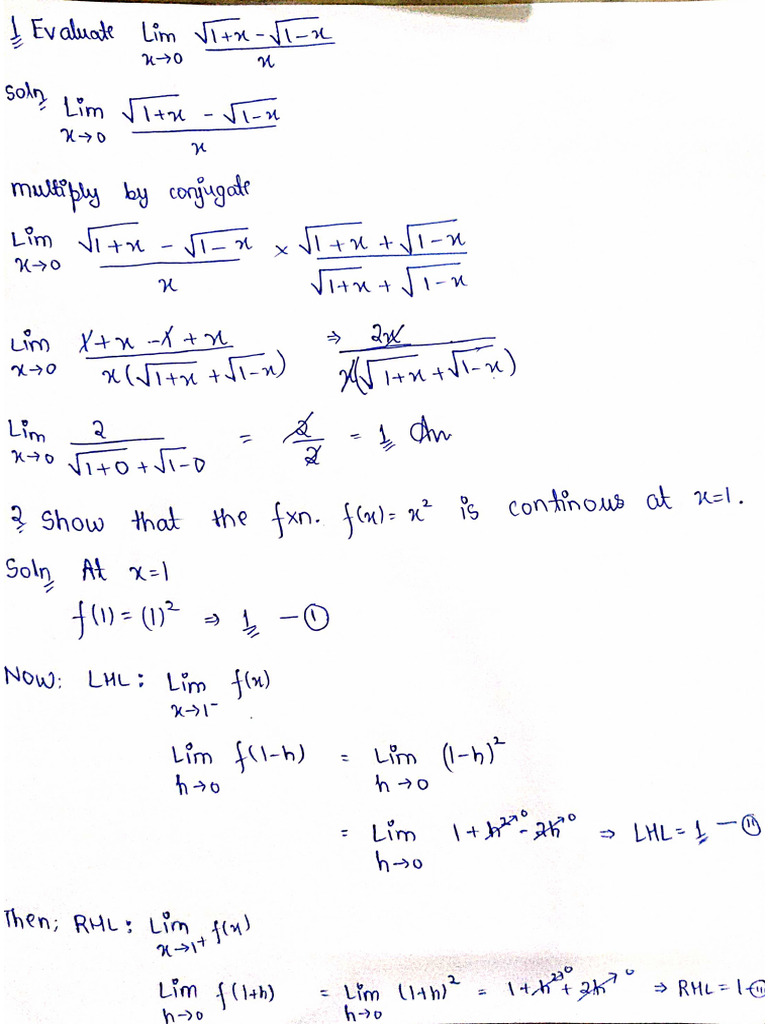 1 Evaluate Lim x→0 √1+x - √1-x / x
Soln Lim x→0 √1+x - √1-x / x
multiply by conjugate
Lim x→0 √1+x - √1-x / x × √1+x + √1-x / √1+x + √1-x
Lim x→0 1+x-1+x / x(√1+x + √1-x) ⇒ 2x / x(√1+x + √1-x)
Lim x→0 2 / √1+0 + √1-0 = 2/2 = 1 An
2 Show that the fxn. f(x) = x² is continous at x=1.
Soln At x=1
f(1) = (1)² ⇒ 1 - (I)
Now: LHL: Lim x→1⁻ f(x)
Lim h→0 f(1-h) = Lim h→0 (1-h)²
= Lim h→0 1 + h²→0 - 2h→0 ⇒ LHL = 1 - (II)
Then; RHL: Lim x→1⁺ f(x)
Lim h→0 f(1+h) = Lim h→0 (1+h)² = 1 + h²→0 + 2h→0 ⇒ RHL = 1 -